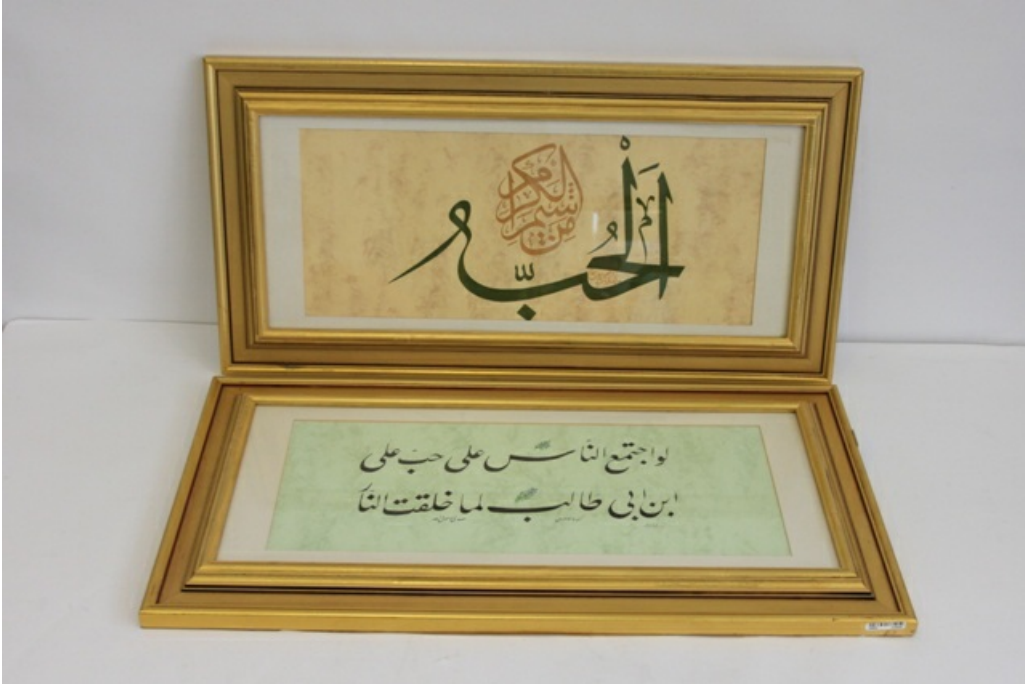 الحب
من شيم الكرام
لو اجتمع الناس على حبّ على
ابن ابى طالب لما خلقت النار